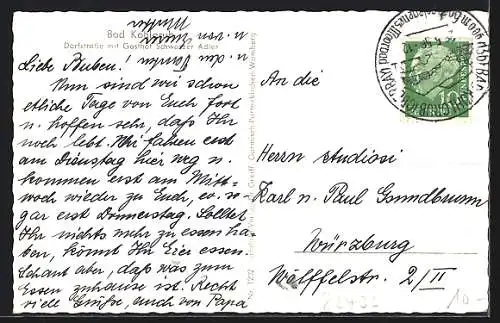 Bad Kohlgrub
Dorfstraße mit Gasthof Schwarzer Adler
Liebe Buben!
Nun sind wir schon
etliche Tage von Euch fort
u. hoffen sehr, daß Ihr
noch lebt. Wir fahren erst
am Dienstag hier weg u.
kommen erst am Mitt-
woch wieder zu Euch, ev. so-
gar erst Donnerstag. Solltet
Ihr nichts mehr zu essen ha-
ben, könnt Ihr Eier essen.
Schaut aber, daß was zum
Essen zuhause ist. Recht
viel Grüße, auch von Papa
u. von
u. der
Mutti
Nr. 1222
An die
Herrn Studiosi
Karl u. Paul Gsundbrunn
Würzburg
Wölffelstr. 2/II
10
10.-